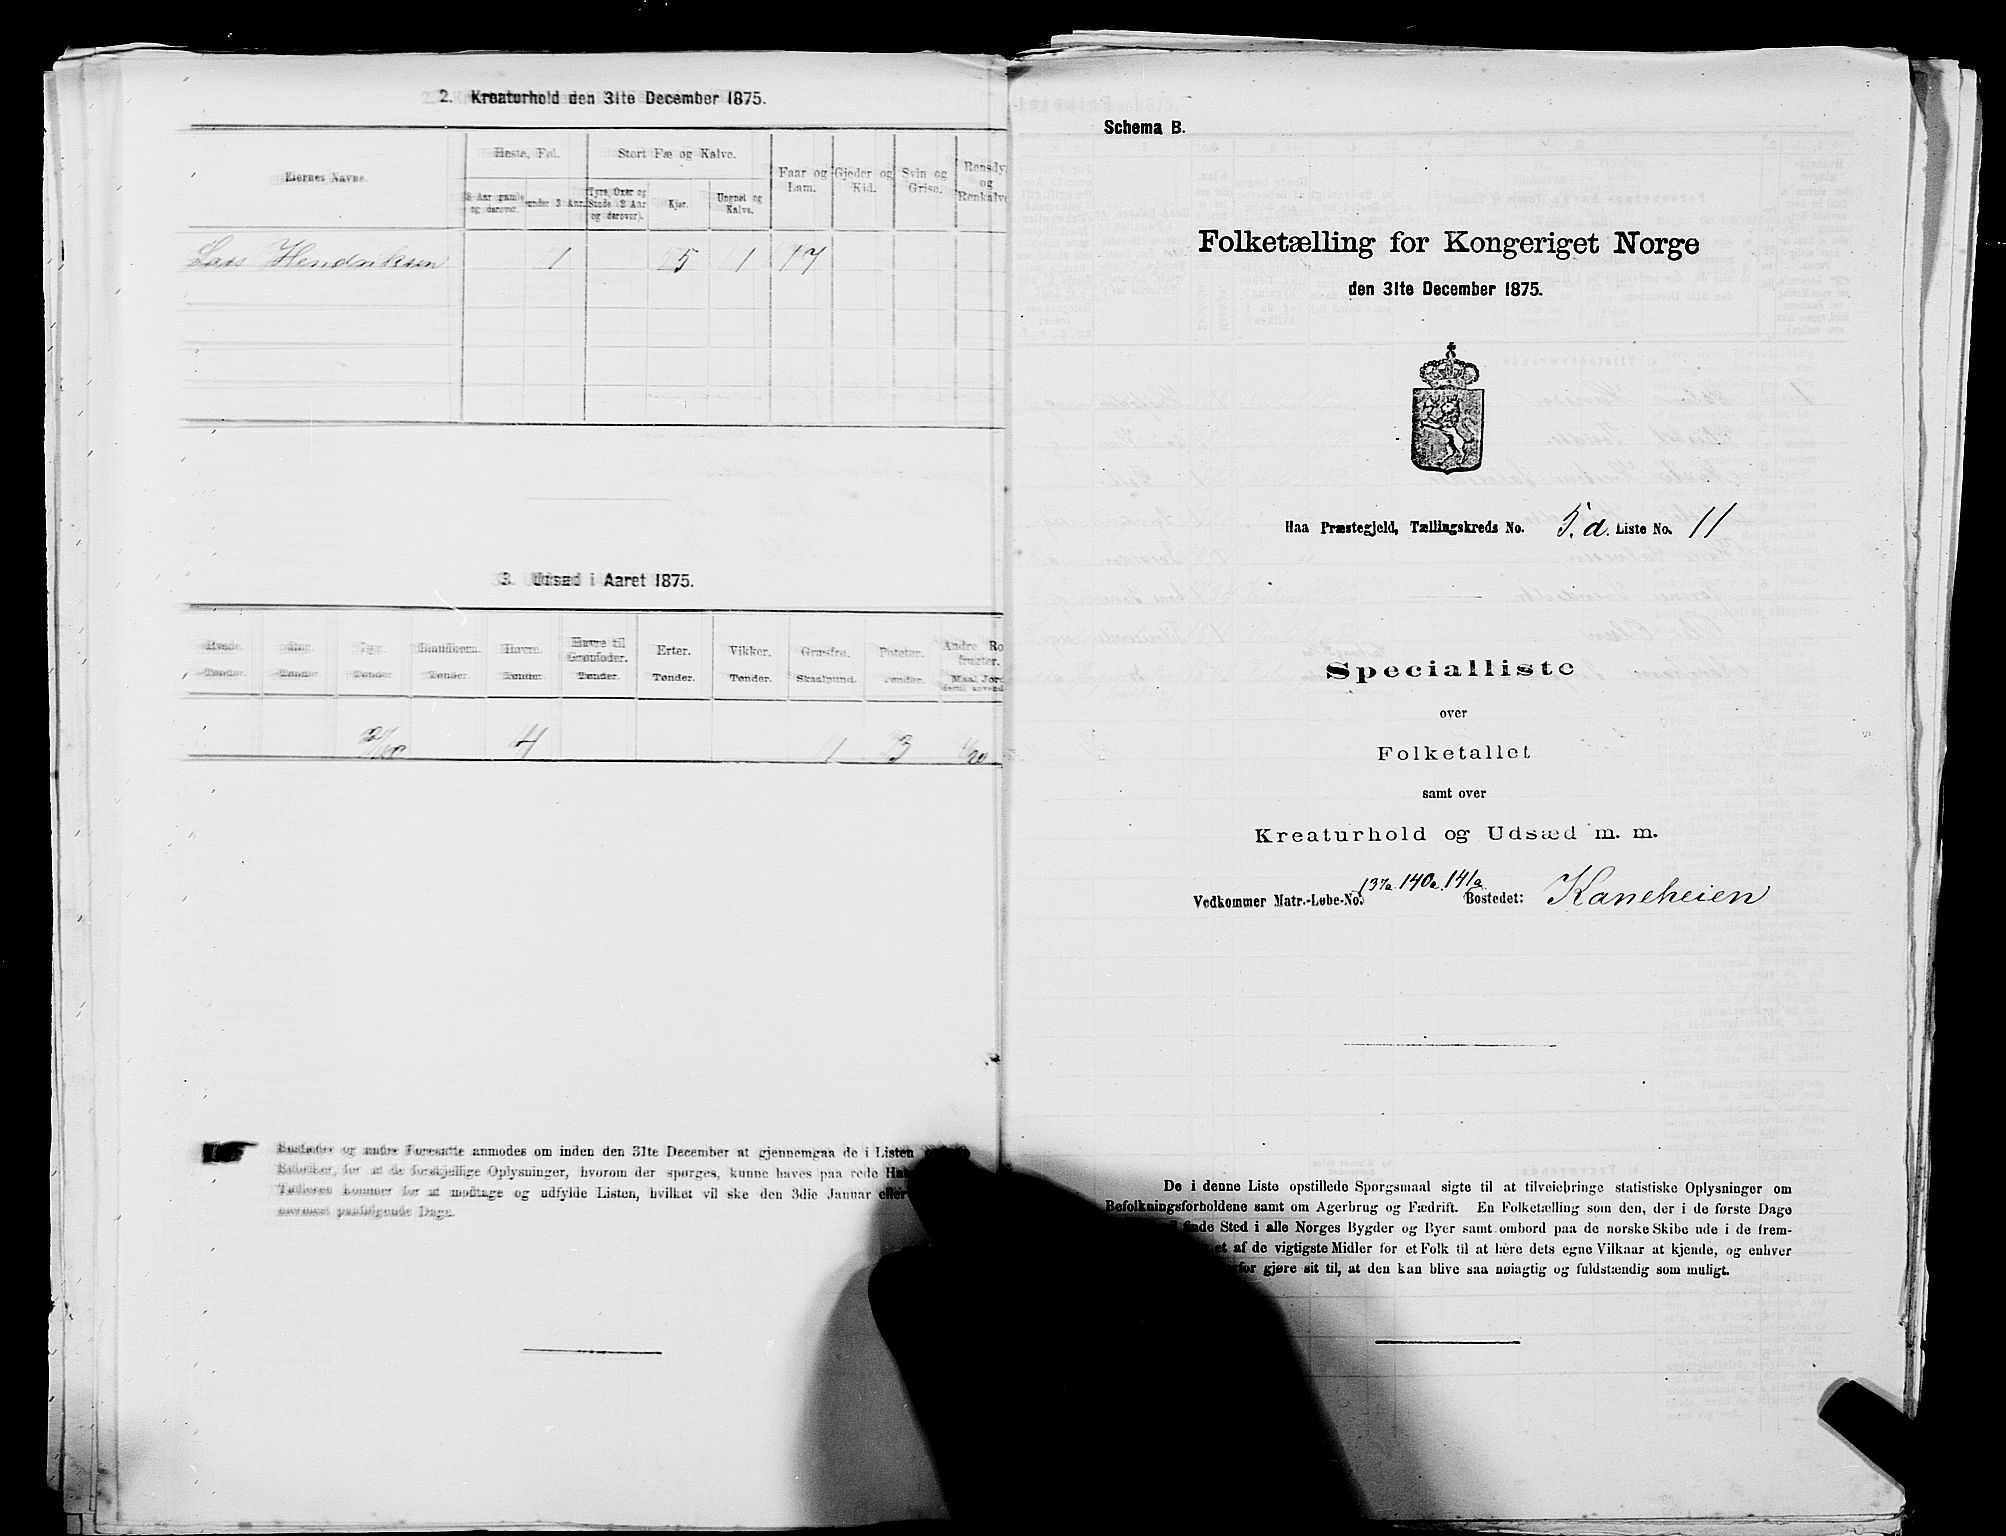 2. Kreaturhold den 31te December 1875.
Eiernes Navne.
Heste, Føl.
Stort Fæ og Kalve.
Faar og Lam.
Gjeder og Kid.
Svin og Grise.
Rensdy
og
Renkalve
3 Aar gamle og derover.
under 3 Aar.
Tyre, Oxer og Stude (2 Aar og derover).
Kjør.
Ungnøt og Kalve.
Lars Hendriksen 1 5 1 17
3. Udsæd i Aaret 1875.
Hvede. Rug. Byg. Blandkorn. Havre. Havre til Grønfoder. Erter. Vikker. Græsfrø. Poteter. Andre Ro
frugter.
Tønder. Tønder. Tønder. Tønder. Tønder. Tønder. Tønder. Tønder. Skaalpund. Tønder. Maal Jor
dertil anvend
4 1 3 1/20
Husfædre og andre Foresatte anmodes om inden den 31te December at gjennemgaa de i Listen
Rubriker, for at de forskjellige Oplysninger, hvorom der spørges, kunne haves paa rede
Tælleren kommer for at modtage og udfylde Listen, hvilket vil ske den 3die Januar eller
nærmest paafølgende Dage.
Schema B.
Folketælling for Kongeriget Norge
den 31te December 1875.
Haa Præstegjeld, Tællingskreds No. 5.d. Liste No. 11
Specialliste
over
Folketallet
samt over
Kreaturhold og Udsæd m. m.
Vedkommer Matr.-Løbe-No. 137a 140a 141a Bostedet: Kaneheien
De i denne Liste opstillede Spørgsmaal sigte til at tilveiebringe statistiske Oplysninger om
Befolkningsforholdene samt om Agerbrug og Fædrift. En Folketælling som den, der i de første Dage
finde Sted i alle Norges Bygder og Byer samt ombord paa de norske Skibe ude i de frem-
et af de vigtigste Midler for et Folk til at lære dets egne Vilkaar at kjende, og enhver
for gjøre sit til, at den kan blive saa nøiagtig og fuldstændig som muligt.